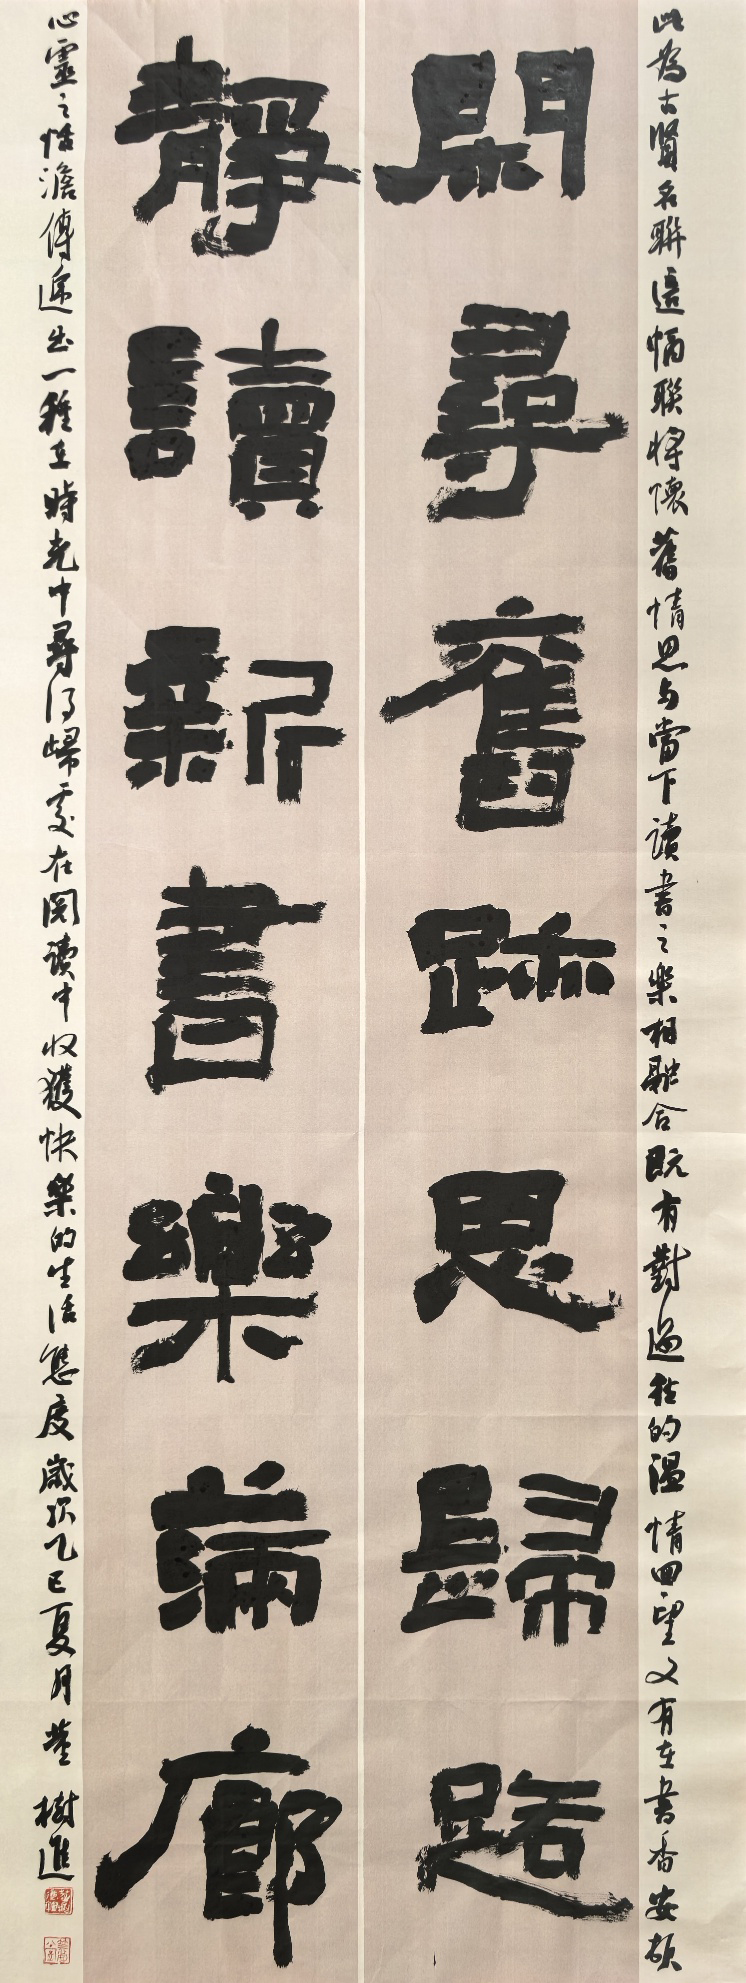 此為古賢名聯這幅聯將懷舊情思与當下讀書之樂相融合既有對過往的溫情回望又有在書香安頓
閑尋舊跡思歸路
靜讀新書樂滿廊
心靈之恬澹傳遞出一種在時光中尋得歸處在閱讀中收獲快樂的生活態度歲次乙巳夏月董樹進